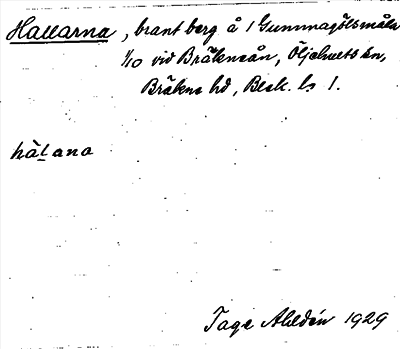 Hallarna, brant berg å 1 Gummagölsmåla
1/10 vid Bräkneån, Öljehults sn,
Bräkne hd, Blek. ls 1.
hàl̲ana
Tage Ahldén 1929